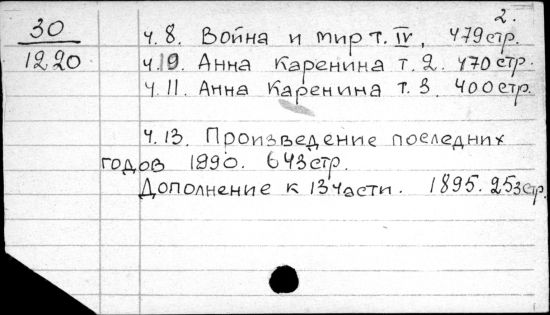 2.
30
1220
ч. 8. Война и мир т. IV, 479стр.
ч. 19. Анна Каренина т. 2. 470стр.
ч. 11. Анна Каренина т. 3. 400стр.
ч. 13. Произведение последних
годов 1890. 643стр.
Дополнение к 13 части. 1895. 253стр.